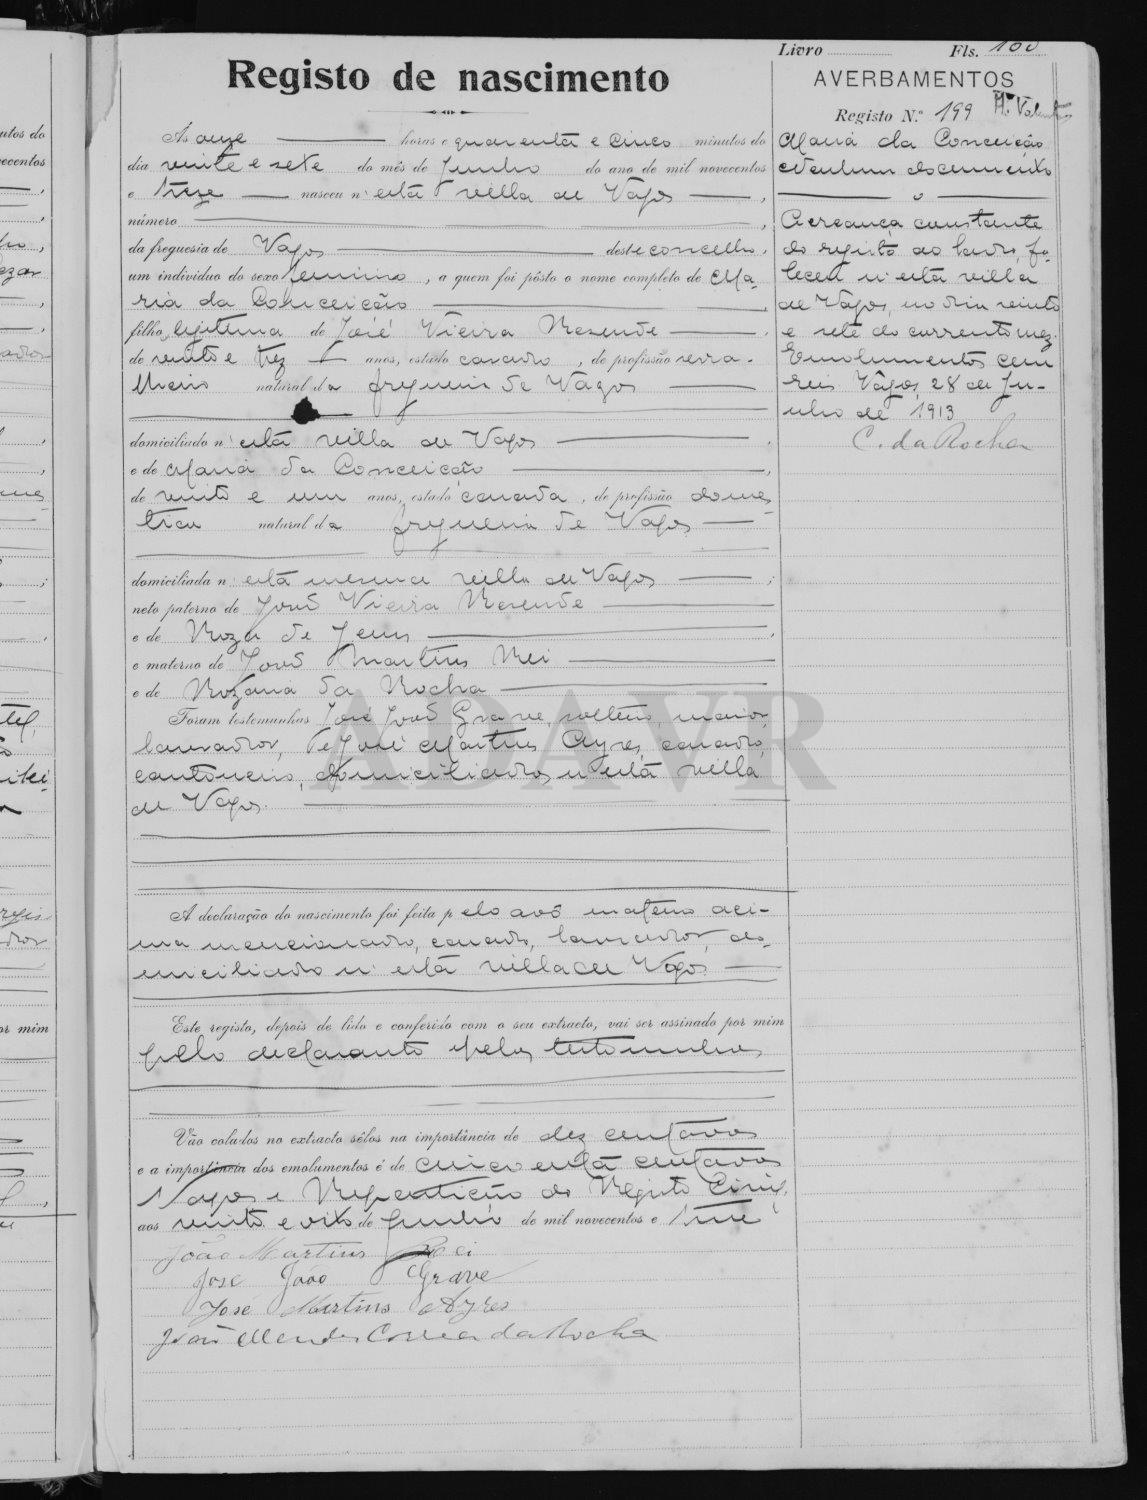 Livro Fls. 100
Registo de nascimento
Ás onze horas e quarenta e cinco minutos do
dia vinte e sete do mês de Junho do ano de mil novecentos
e treze nasceu n'esta villa de Vagos,
número
da freguesia de Vagos deste concelho,
um indivíduo do sexo femenino, a quem foi pôsto o nome completo de Ma-
ria da Conceição
filha legitima de José Vieira Resende
de vinte e trez anos, estado casado, de profissão serra-
lheiro natural da freguesia de Vagos
domiciliado n'esta villa de Vagos,
e de Maria da Conceição,
de vinte e um anos, estado casada, de profissão domes-
tica natural da freguesia de Vagos
domiciliada n'esta mesma villa de Vagos;
neto paterno de João Vieira Resende
e de Roza de Jesus,
e materno de João Martins Rei
e de Rozaria da Rocha
Foram testemunhas José João Grave, solteiro, maior,
lavrador, e José Martins Ayres, casado,
cantoneiro, domiciliados n'esta villa
de Vagos.
A declaração do nascimento foi feita pelo avô materno aci-
ma mencionado, casado, lavrador, do-
miciliado n'esta villa de Vagos
Este registo, depois de lido e conferido com o seu extracto, vai ser assinado por mim
pelo declarante e pelas testemunhas
Vão colados no extracto sêlos na importância de dez centavos
e a importância dos emolumentos é de cincoenta centavos
Vagos e Repartição do Registo Civil,
aos vinte e oito de Junho de mil novecentos e treze
João Martins Rei
José João Grave
José Martins Ayres
João Mendes Correia da Rocha
AVERBAMENTOS
Registo N.º 199
Maria da Conceição
Nenhum documento
A creança constante
do registo ao lado, fa-
leceu n'esta villa
de Vagos, no dia vinte
e sete do corrente mez.
Emolumentos cem
reis Vagos, 28 de Ju-
nho de 1913
C. da Rocha
ADAVR